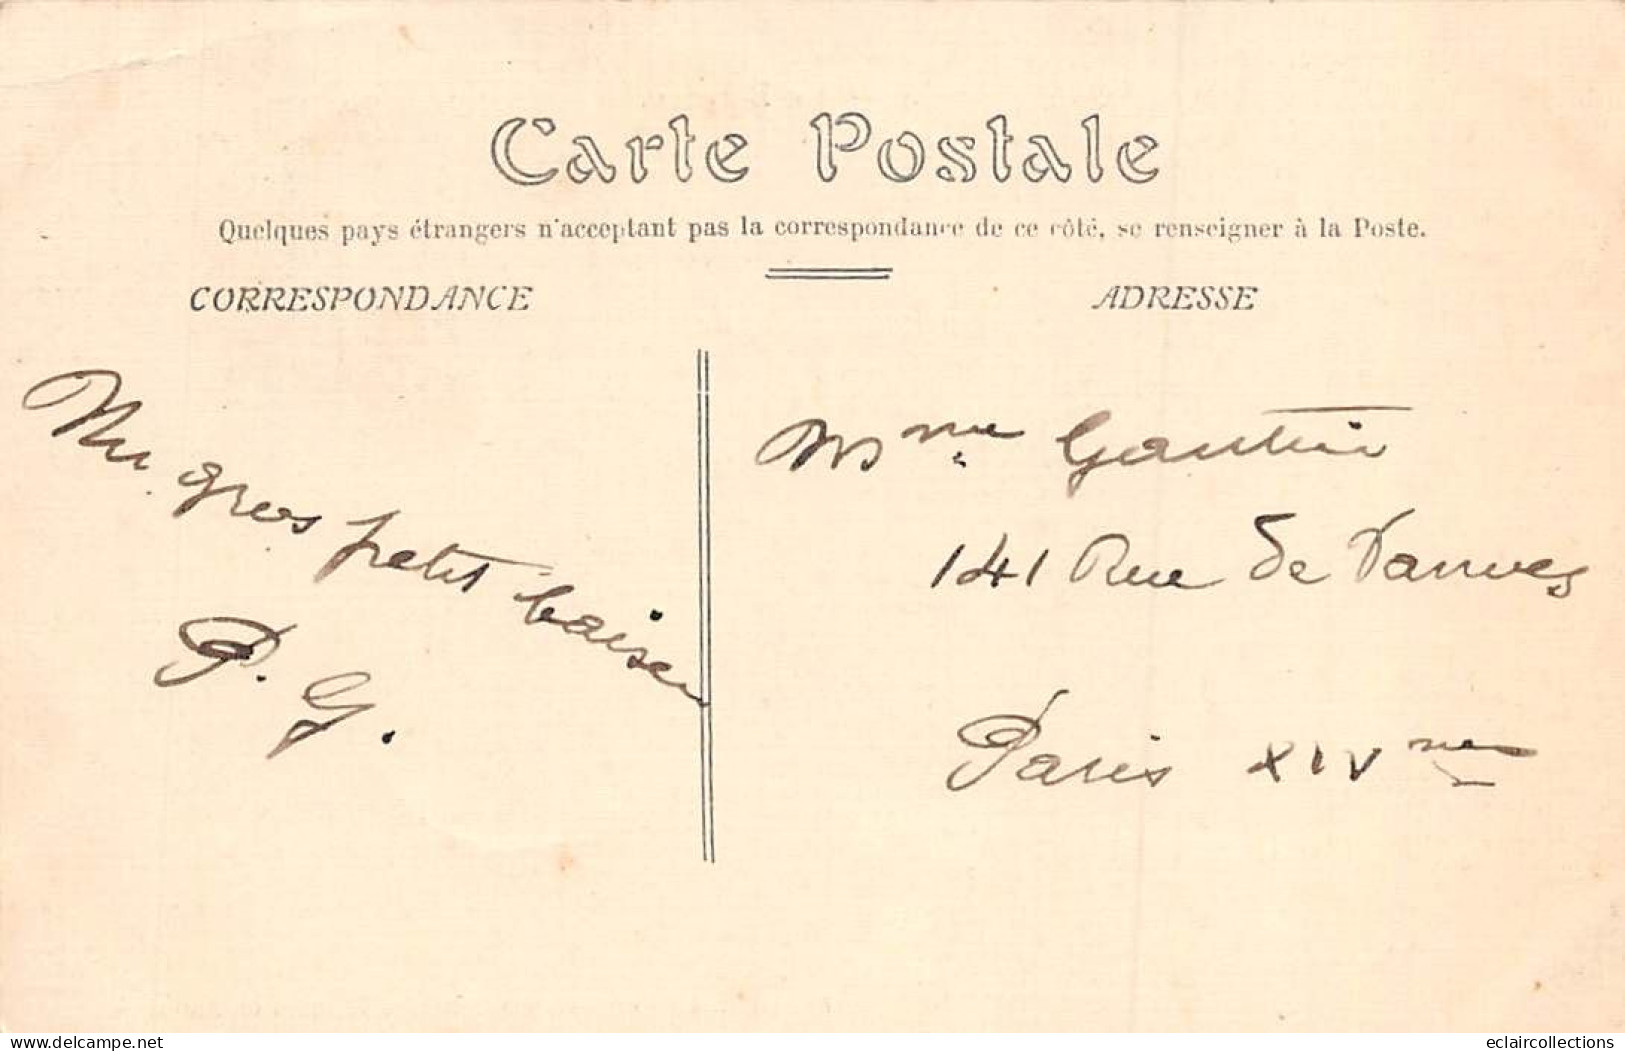 Carte Postale
Quelques pays étrangers n'acceptant pas la correspondance de ce côté, se renseigner à la Poste.
CORRESPONDANCE
ADRESSE
Un gros petit baiser
P. G.
Mme Gautier
141 Rue de Vanves
Paris XIVme
www.delcampe.net
eclaircollections